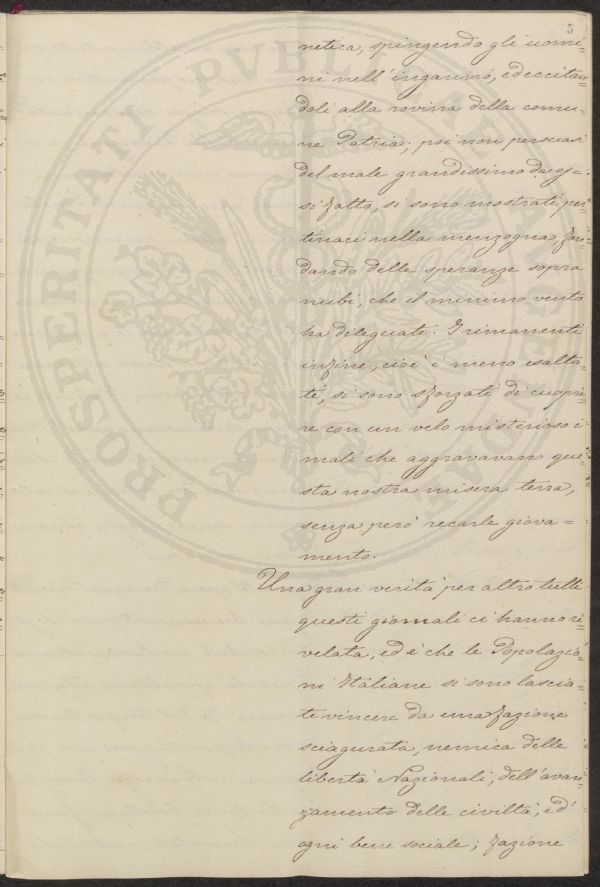 5
netica, spingendo gli uomi=
ni nell'inganno, ed eccitan=
doli alla rovina della comu=
ne Patria; poi non persuasi
del male grandissimo da es=
si fatto, si sono mostrati per=
tinaci nella menzogna, fon=
dando delle speranze sopra
nubi, che il minimo vento
ha dileguate. I rimanenti
infine, cioè i meno esalta=
ti, si sono sforzati di cuopri=
re con un velo misterioso i
mali che aggravavano que=
sta nostra misera terra,
senza però recarle giova=
mento.
Una gran verità per altro tutti
questi giornali ci hanno ri=
velata, ed è che le Popolazio=
ni Italiane si sono lascia=
te vincere da una fazione
sciagurata, nemica delle
libertà Nazionali, dell'avan=
zamento delle civiltà, ed
ogni bene sociale; fazione
PROSPERITATI PUBLICAE